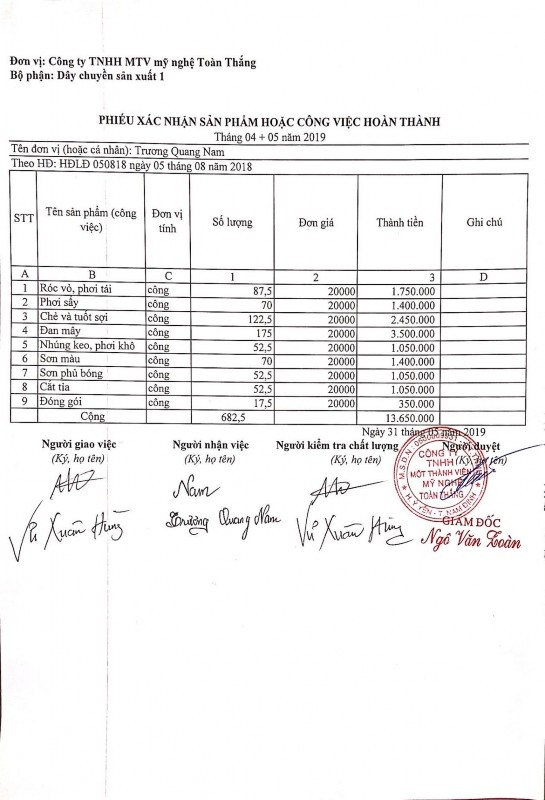 Đơn vị: Công ty TNHH MTV mỹ nghệ Toàn Thắng
Bộ phận: Dây chuyền sản xuất 1
PHIẾU XÁC NHẬN SẢN PHẨM HOẶC CÔNG VIỆC HOÀN THÀNH
Tháng 04 + 05 năm 2019
Tên đơn vị (hoặc cá nhân): Trương Quang Nam
Theo HĐ: HĐLĐ 050818 ngày 05 tháng 08 năm 2018
STT Tên sản phẩm (công việc) Đơn vị tính Số lượng Đơn giá Thành tiền Ghi chú
A B C 1 2 3 D
1 Róc vỏ, phơi tái công 87,5 20000 1.750.000
2 Phơi sấy công 70 20000 1.400.000
3 Chẻ và tuốt sợi công 122,5 20000 2.450.000
4 Đan mây công 175 20000 3.500.000
5 Nhúng keo, phơi khô công 52,5 20000 1.050.000
6 Sơn màu công 70 20000 1.400.000
7 Sơn phủ bóng công 52,5 20000 1.050.000
8 Cắt tỉa công 52,5 20000 1.050.000
9 Đóng gói công 17,5 20000 350.000
Cộng 682,5 13.650.000
Ngày 31 tháng 05 năm 2019
Người giao việc Người nhận việc Người kiểm tra chất lượng Người duyệt
(Ký, họ tên) (Ký, họ tên) (Ký, họ tên) (Ký, họ tên)
CÔNG TY
TNHH
MỘT THÀNH VIÊN
MỸ NGHỆ
TOÀN THẮNG
H.Ý YÊN - T. NAM ĐỊNH
Nam
Vũ Xuân Hùng Trương Quang Nam Vũ Xuân Hùng
GIÁM ĐỐC
Ngô Văn Toàn